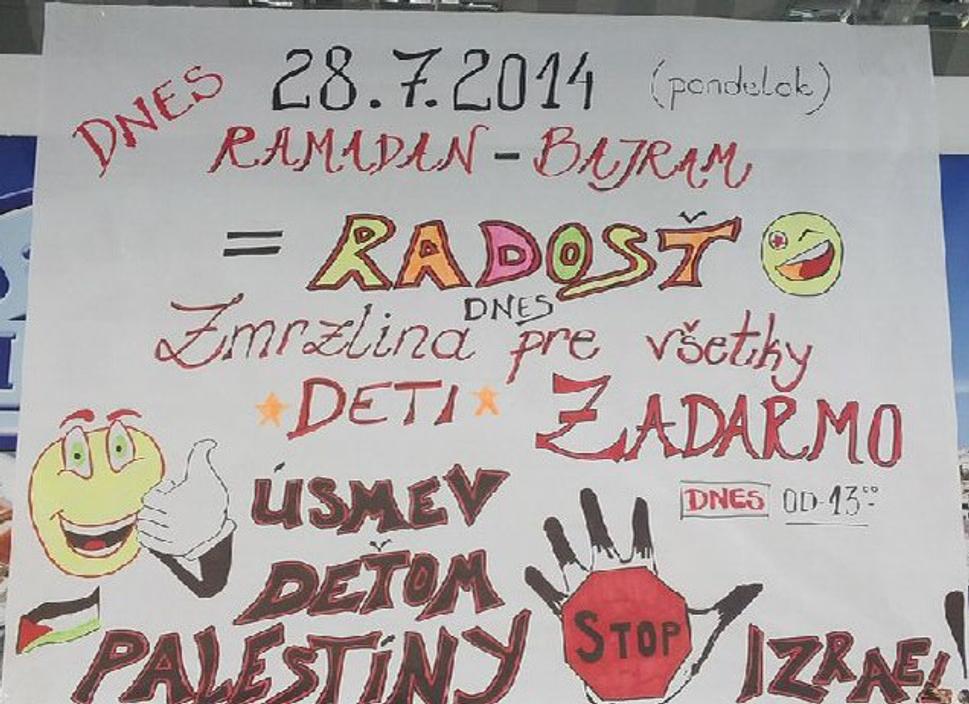 DNES 28.7.2014 (pondelok)
RAMADAN - BAJRAM
= RADOSŤ
DNES
Zmrzlina pre všetky
DETI ZADARMO
DNES OD-13⁰⁰
ÚSMEV
DEŤOM
PALESTÍNY
STOP
IZRAEL!